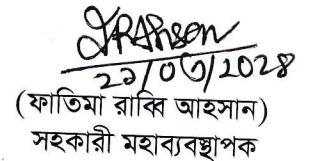 ২৯/০৫/২০২৪
(ফাতিমা রাব্বি আহসান)
সহকারী মহাব্যবস্থাপক